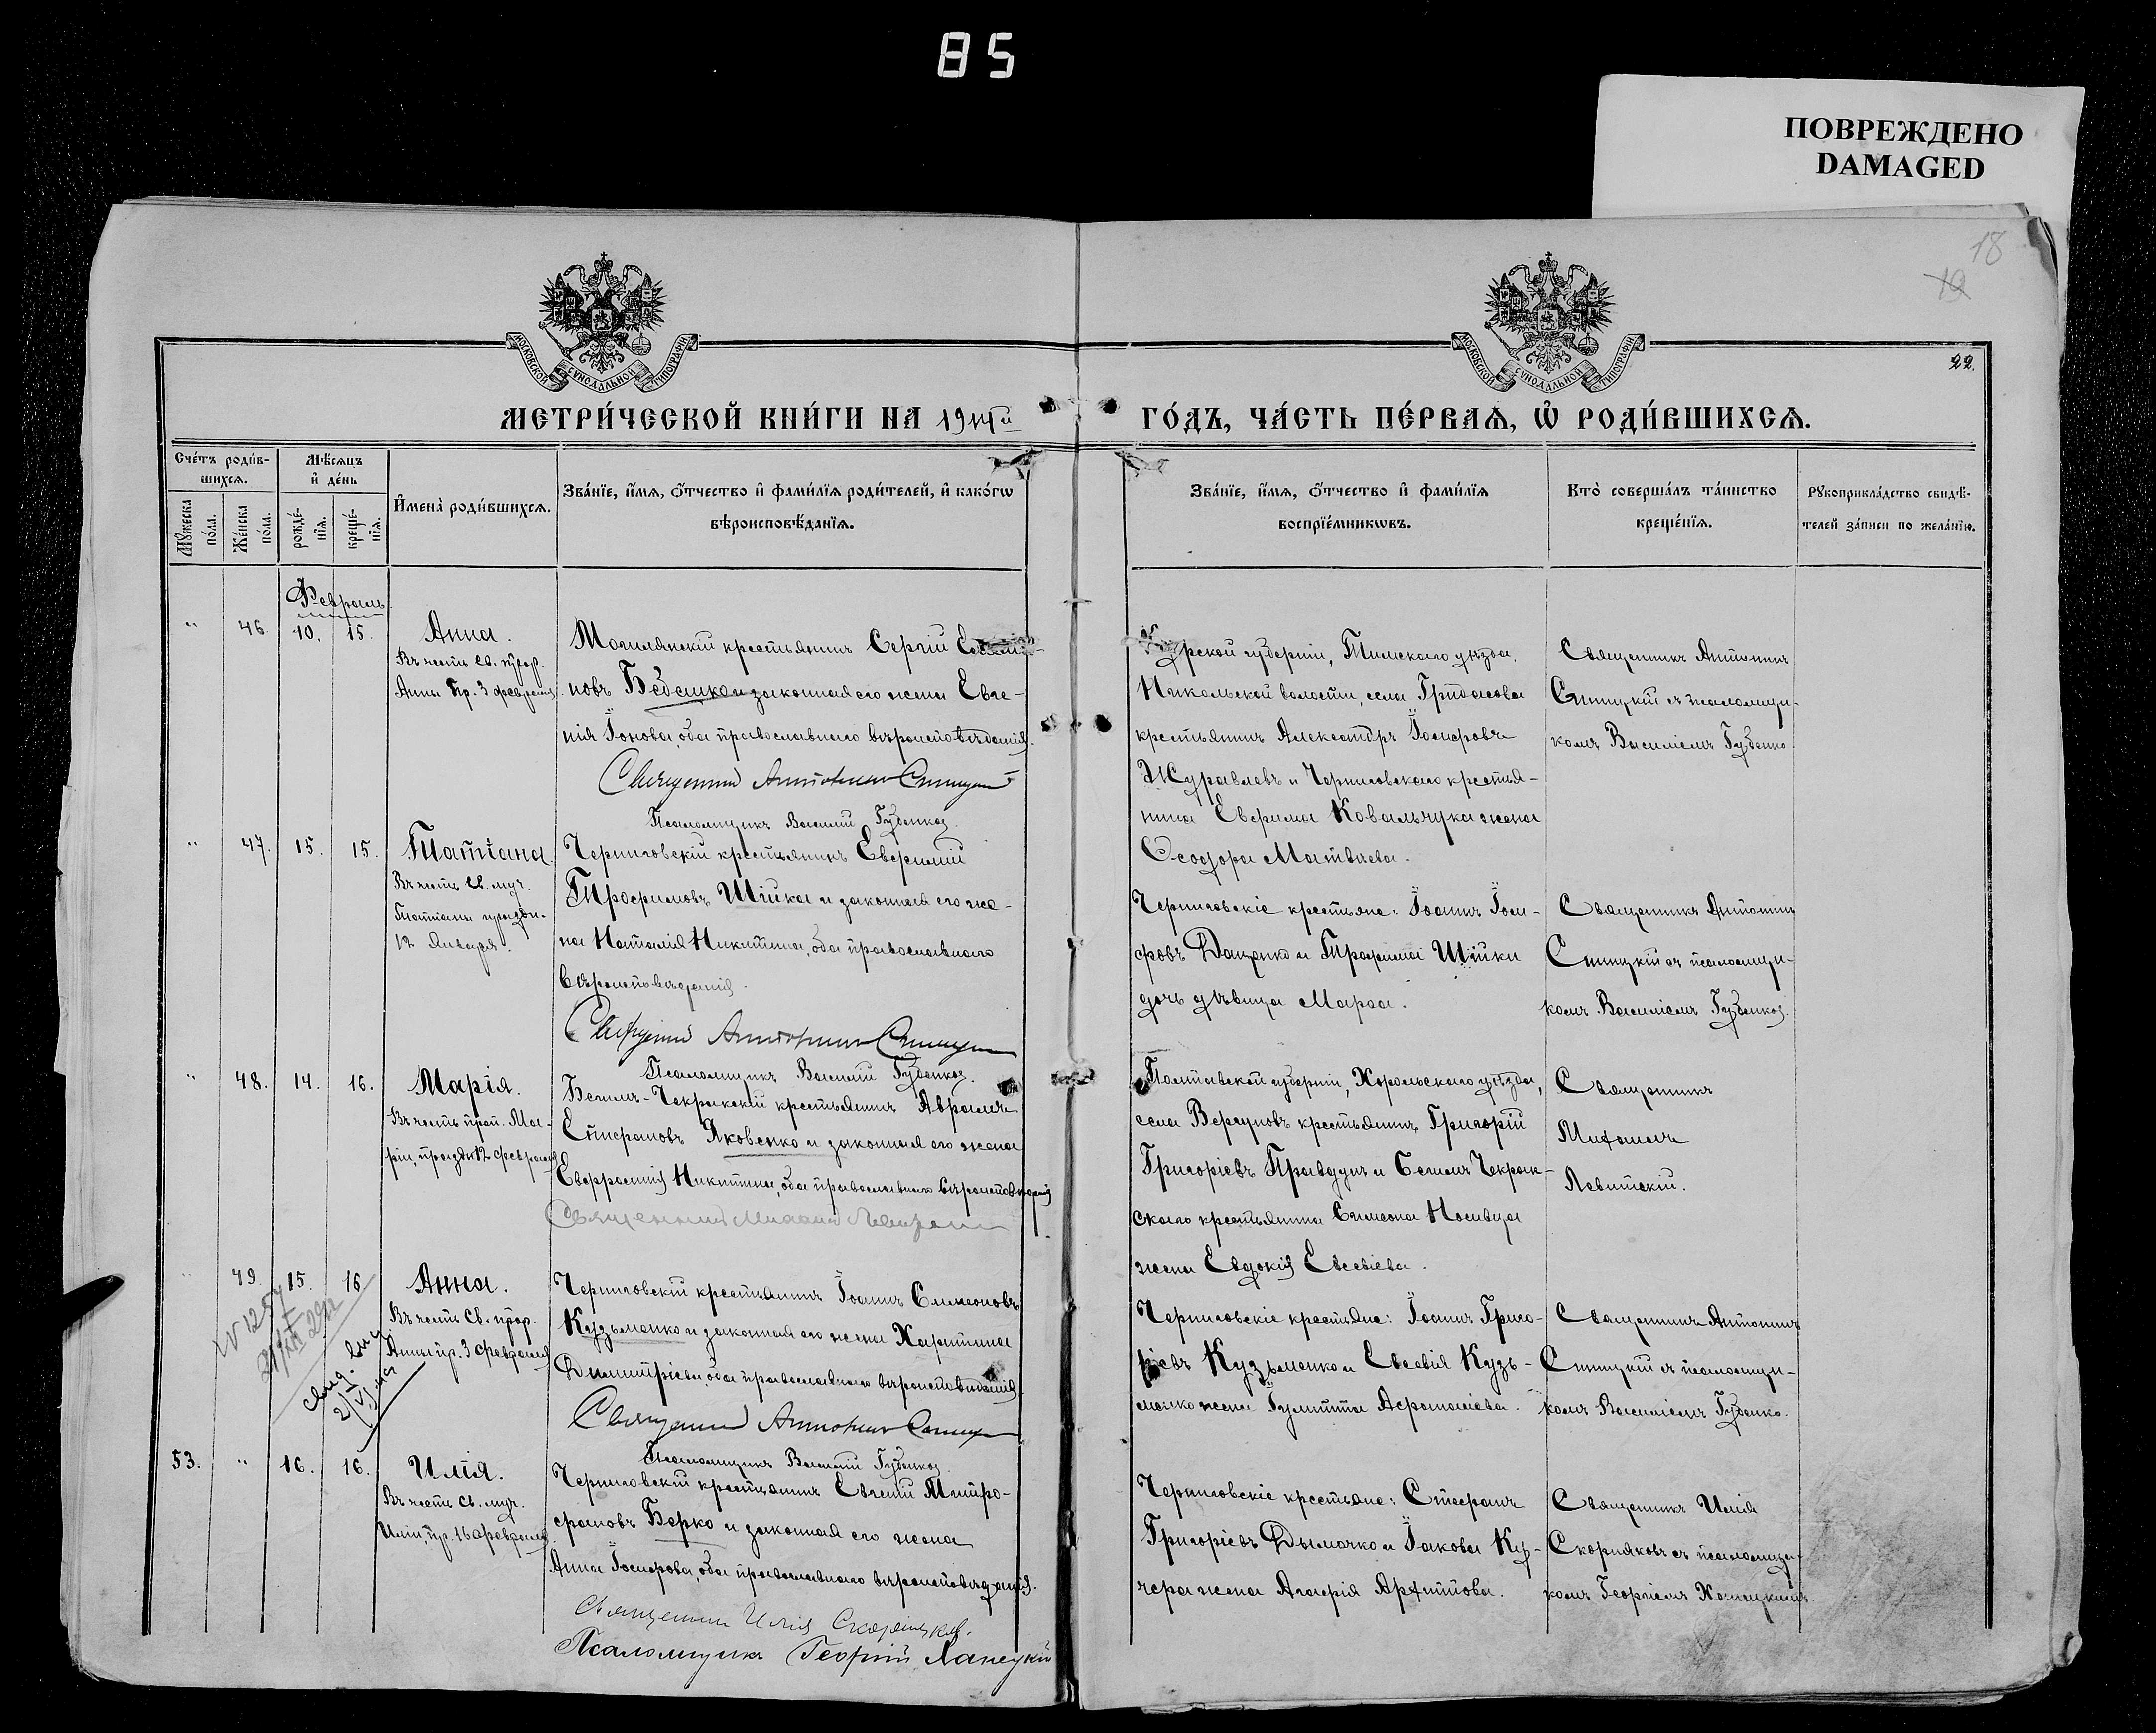 85
ПОВРЕЖДЕНО
DAMAGED
18
19
22.
МОСКОВСКОЙ СѴНОДАЛЬНОЙ ТИПОГРАФІИ
МОСКОВСКОЙ СѴНОДАЛЬНОЙ ТИПОГРАФІИ
МЕТРИ́ЧЕСКОЙ КНИ́ГИ НА 1914й
ГО́ДЪ, ЧА́СТЬ ПЕ́РВАѦ, Ѡ҆ РОДИ́ВШИХСѦ.
Сче́тъ роди́в-
шихсѧ.
Мꙋжеска по́ла.
Же́нска по́ла.
Мѣ́сѧцъ
и҆ де́нь
рожде́-
нїѧ.
креще́-
нїѧ.
И҆мена̀ роди́вшихсѧ.
Зва́нїе, и҆́мѧ, ѻ҆́тчество и҆ фами́лїѧ роди́телей, и҆ како́гѡ
вѣроисповѣ́данїѧ.
Зва́нїе, и҆́мѧ, ѻ҆́тчество и҆ фами́лїѧ
воспрїе́мникѡвъ.
Кто̀ соверша́лъ та́инство
креще́нїѧ.
Рꙋкоприкла́дство свидѣ́-
телей за́писи по жела́нїю.
Февраль
" 46. 10. 15.
Анна.
Въ честь св. прор.
Анны пр. 3 февраля
Могилянскій крестьянинъ Сергій
новъ Бедешко и законная его жена Евге-
нія Іонова, оба православнаго вѣроисповѣданія.
Священникъ Антонинъ Спицкій
Псаломщикъ Василій Губенко
Курской губерніи, Тимскаго уѣзда,
Никольской волости, села Гридасова
крестьянинъ Александръ Іосифовъ
Журавлевъ и Черниговскаго крестья-
нина Ефима Ковальчука жена
Ѳеодора Матвѣева.
Священникъ Антонинъ
Спицкій съ псаломщи-
комъ Василіемъ Губенко
" 47. 15. 15.
Татіана.
Въ честь св. муч.
Татіаны праздн.
12 Января.
Черниговскій крестьянинъ Евфимій
Трофимовъ Шійка и законная его же-
на Наталія Никитина, оба православнаго
вѣроисповѣданія.
Священникъ Антонинъ Спицкій
Псаломщикъ Василій Губенко
Черниговскіе крестьяне: Іоаннъ Іоси-
фовъ Даценко и Трофима Шійки
дочь дѣвица Марѳа.
Священникъ Антонинъ
Спицкій съ псаломщи-
комъ Василіемъ Губенко.
" 48. 14. 16.
Марія.
Въ честь прп. Ма-
ріи, праздн. 12 февраля
Бегимъ-Чекракскій крестьянинъ Авраамъ
Стефановъ Яковенко и законная его жена
Евфросинія Никитина, оба православнаго вѣроисповѣданія
Священникъ Михаилъ Левитскій
Полтавской губерніи, Хорольскаго уѣзда,
села Вергуновъ крестьянинъ Григорій
Григоріевъ Правдунъ и Бегимъ Чекрак-
скаго крестьянина Симеона Носивца
жена Евдокія Евсевіева.
Священникъ
Михаилъ
Левитскій.
" 49. 15. 16
Анна.
Въ честь св. прор.
Анны пр. 3 февраля
N 1254
Черниговскій крестьянинъ Іоаннъ Симеоновъ
Кузьменко и законная его жена Харитина
Димитріева, оба православнаго вѣроисповѣданія.
Священникъ Антонинъ Спицкій
Псаломщикъ Василій Губенко
Черниговскіе крестьяне: Іоаннъ Григо-
ріевъ Кузьменко и Евсевія Кузь-
менко жена Іулитта Аѳанасіева.
Священникъ Антонинъ
Спицкій съ псаломщи-
комъ Василіемъ Губенко.
53. " 16. 16.
Илія.
Въ честь св. муч.
Иліи, пр. 16 февраля
Черниговскій крестьянинъ Евгеній Митро-
фановъ Берко и законная его жена
Анна Іосифова, оба православнаго вѣроисповѣданія.
Священникъ Илія Скориковъ.
Псаломщикъ Георгій Ханецкій
Черниговскіе крестьяне: Стефанъ
Григоріевъ Дымочко и Іакова Ку-
чера жена Агафія Архиппова.
Священникъ Илія
Скориковъ съ псаломщи-
комъ Георгіемъ Ханецкимъ